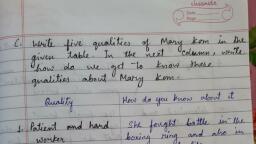 classmate
Date
Page
C. Write five qualities of Mary Kom in the
given table. In the next column, write
how do we get to know these
qualities about Mary Kom.
Quality How do you know about it
1. Patient and hard She fought battle in the
worker boxing ring and also in